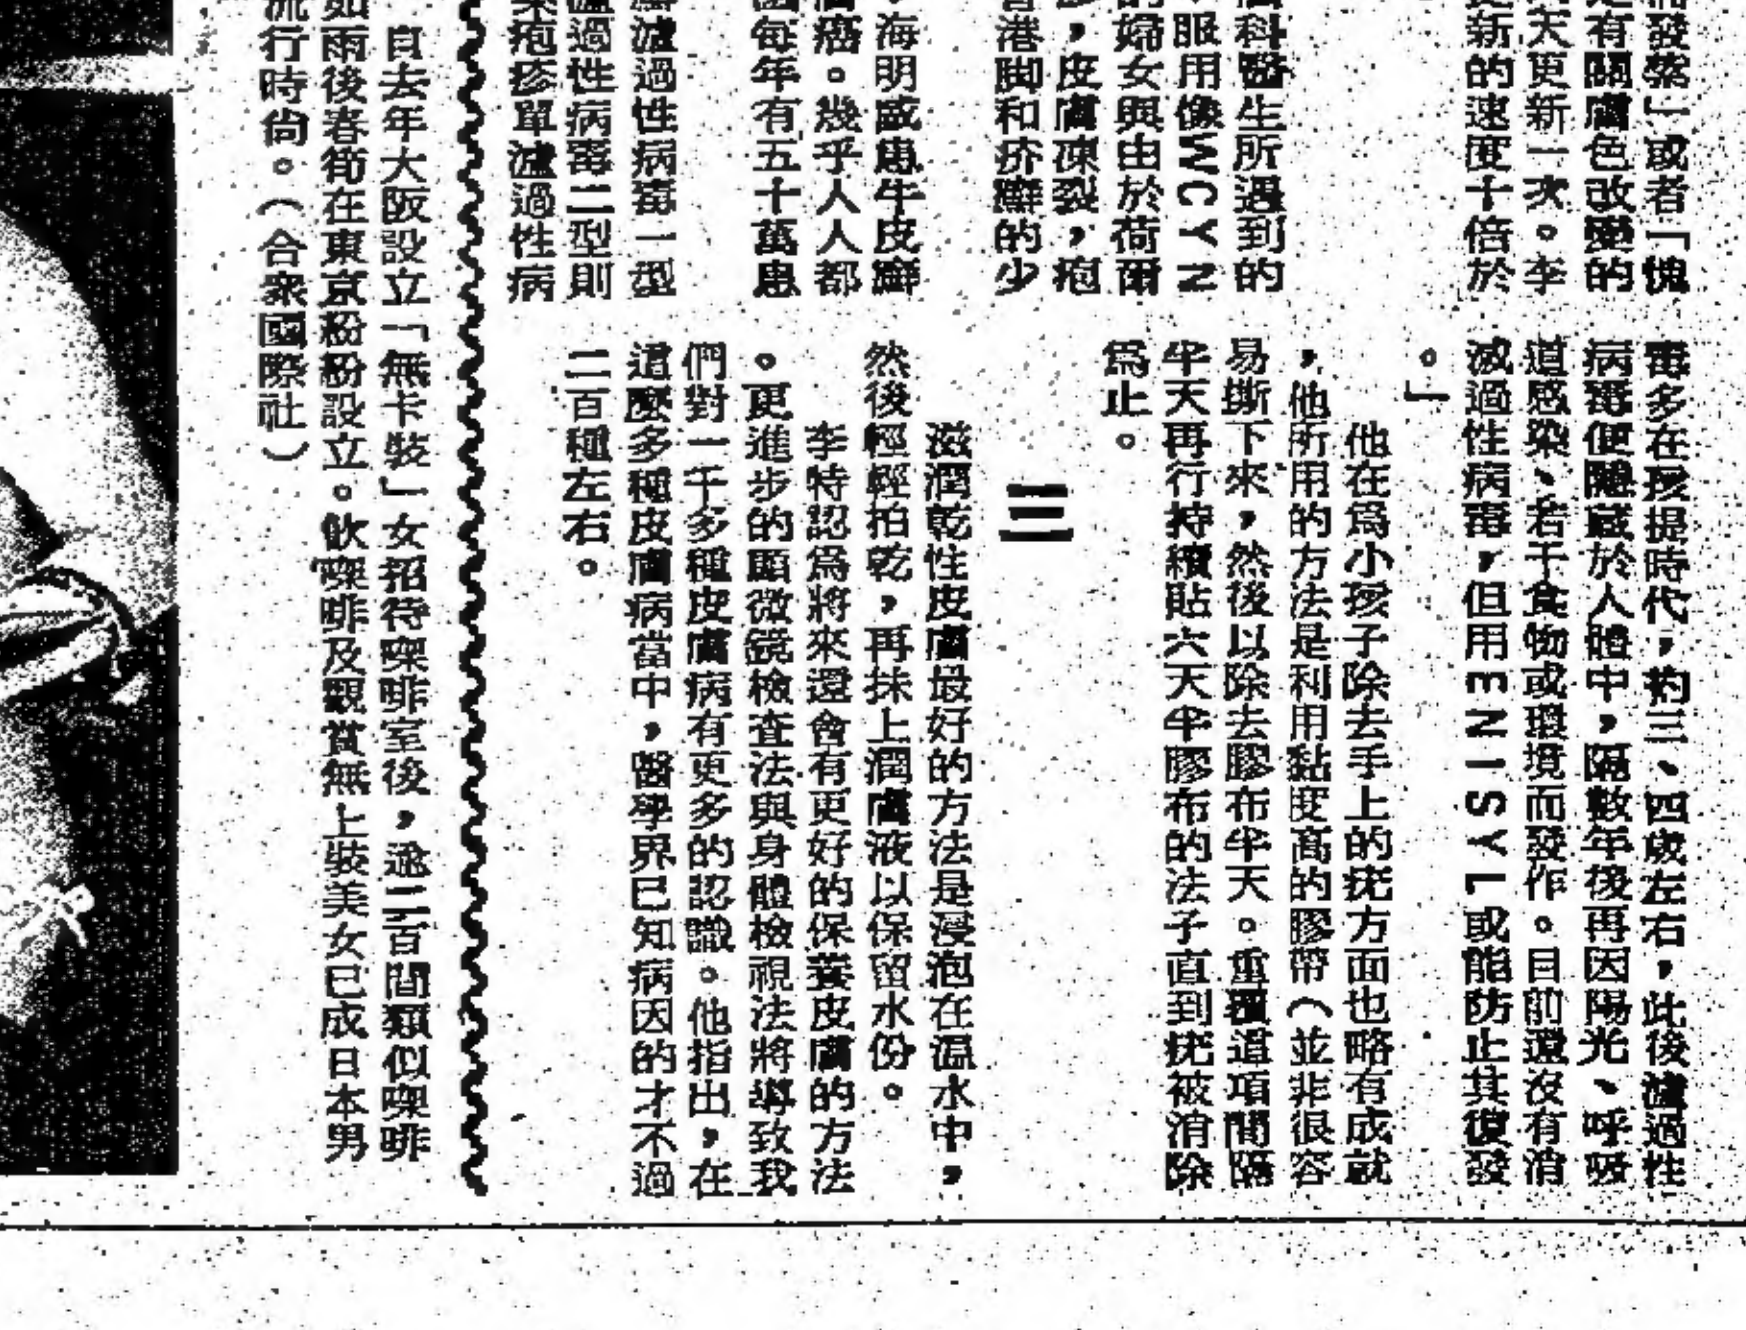 發紫」或者「愧
有關膚色改變的
天更新一次。李
更新的速度十倍於
科醫生所遇到的
服用像WCYN
的婦女與由於荷爾
,皮膚凍裂,疱
香港脚和疥癬的少
海明威患牛皮癬
癌。幾乎人人都
每年有五十萬患
濾過性病毒一型
濾過性病毒二型則
疱疹單濾過性病
毒多在孩提時代,約三、四歲左右,此後濾過性
病毒便隱藏於人體中,隔數年後再因陽光、呼吸
道感染、若干食物或環境而發作。目前還沒有消
滅過性病毒,但用ENISYL或能防止其復發
。」
他在爲小孩子除去手上的疣方面也略有成就
,他所用的方法是利用黏度高的膠帶(並非很容
易撕下來,然後以除去膠布半天。重覆這項間隔
半天再行持續貼六天半膠布的法子直到疣被消除
爲止。
三
滋潤乾性皮膚最好的方法是浸泡在溫水中,
然後輕輕拍乾,再抹上潤膚液以保留水份。
李特認爲將來還會有更好的保養皮膚的方法
。更進步的顯微鏡檢查法與身體檢視法將導致我
們對一千多種皮膚病有更多的認識。他指出,在
這麼多種皮膚病當中,醫學界已知病因的才不過
二百種左右。
自去年大阪設立「無卡裝」女招待㗎啡室後,逾二百間類似㗎啡
如雨後春筍在東京紛紛設立。飲㗎啡及觀賞無上裝美女已成日本男
流行時尚。(合衆國際社)